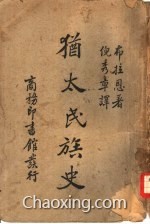 布拉恩著
倪秀章譯
猶太民族史
商務印書館發行
Chaoxing.com